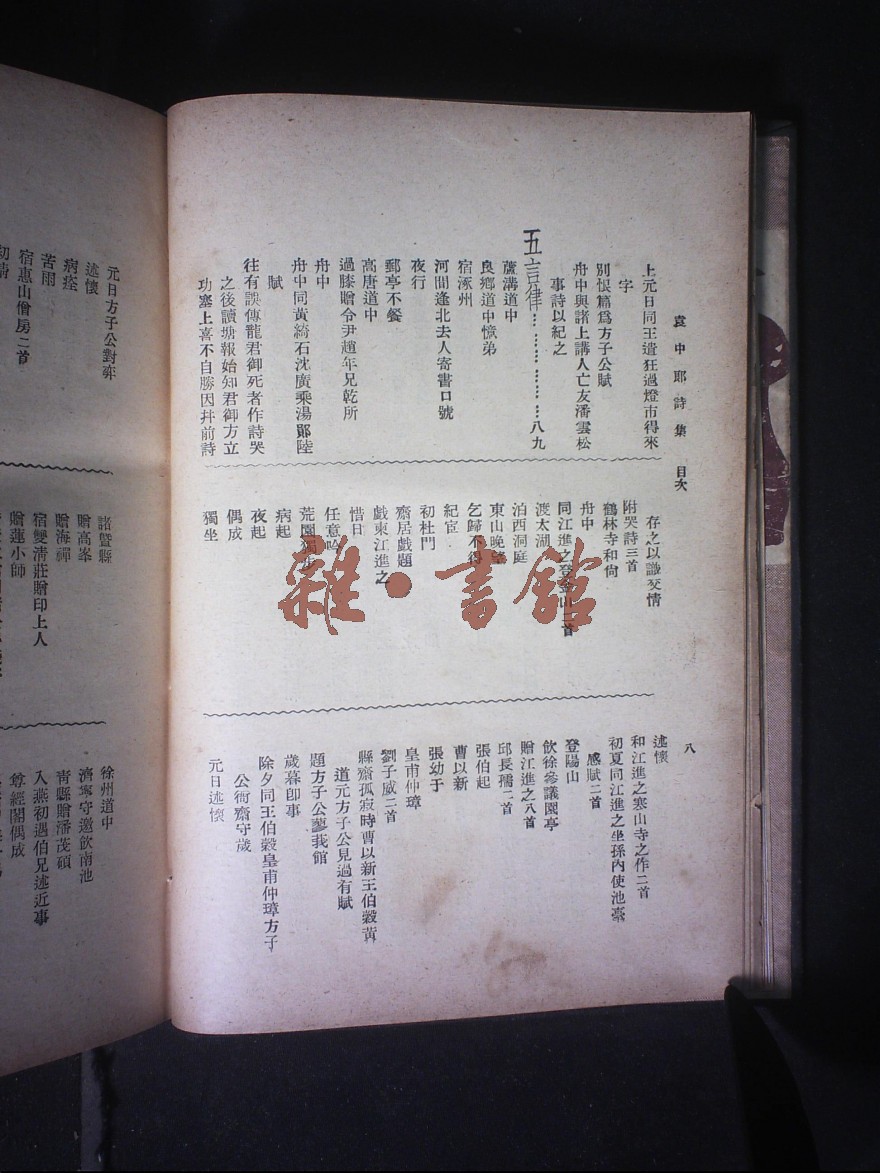 袁中郎詩集　目次
八
上元日同王遺狂過燈市得來
字
別恨篇爲方子公賦
舟中與諸上講人亡友潘雲松
事詩以紀之
五言律⋯⋯⋯⋯⋯八九
蘆溝道中
良鄉道中憶弟
宿涿州
河間逢北去人寄書口號
夜行
郵亭不餐
高唐道中
過滕贈令尹趙年兄乾所
舟中
舟中同黃綺石沈廣乘湯鄖陸
賦
往有誤傳龍君御死者作詩哭
之後讀塘報始知君御方立
功塞上喜不自勝因幷前詩
存之以識交情
附哭詩三首
鶴林寺和尙
舟中
同江進之登金山二首
渡太湖
泊西洞庭
東山晚望
乞歸不得
紀宦
初杜門
齋居戲題
戲東江進之
惜日
任意吟
荒園獨步
病起
夜起
偶成
獨坐
述懷
和江進之寒山寺之作二首
初夏同江進之坐孫內使池臺
感賦二首
登陽山
飲徐參議園亭
贈江進之八首
邱長孺二首
張伯起
曹以新
張幼于
皇甫仲璋
劉子威二首
縣齋孤寂時曹以新王伯穀黃
道元方子公見過有賦
題方子公蓼莪館
歲暮卽事
除夕同王伯穀皇甫仲璋方子
公衙齋守歲
元日述懷
元日方子公對弈
述懷
病痊
苦雨
宿惠山僧房二首
初晴
諸暨縣
贈高峯
贈海禪
宿雙清莊贈印上人
贈蓮小師
徐州道中
濟寧守邀飲南池
靑縣贈潘茂碩
入燕初遇伯兄述近事
尊經閣偶成
雜·書館